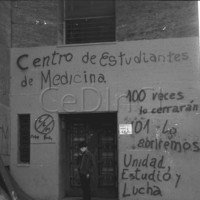 Centro de Estudiantes
de Medicina
CeDInCI
100 veces
lo cerrarán
101 lo
abriremos
Unidad,
Estudio y
Lucha